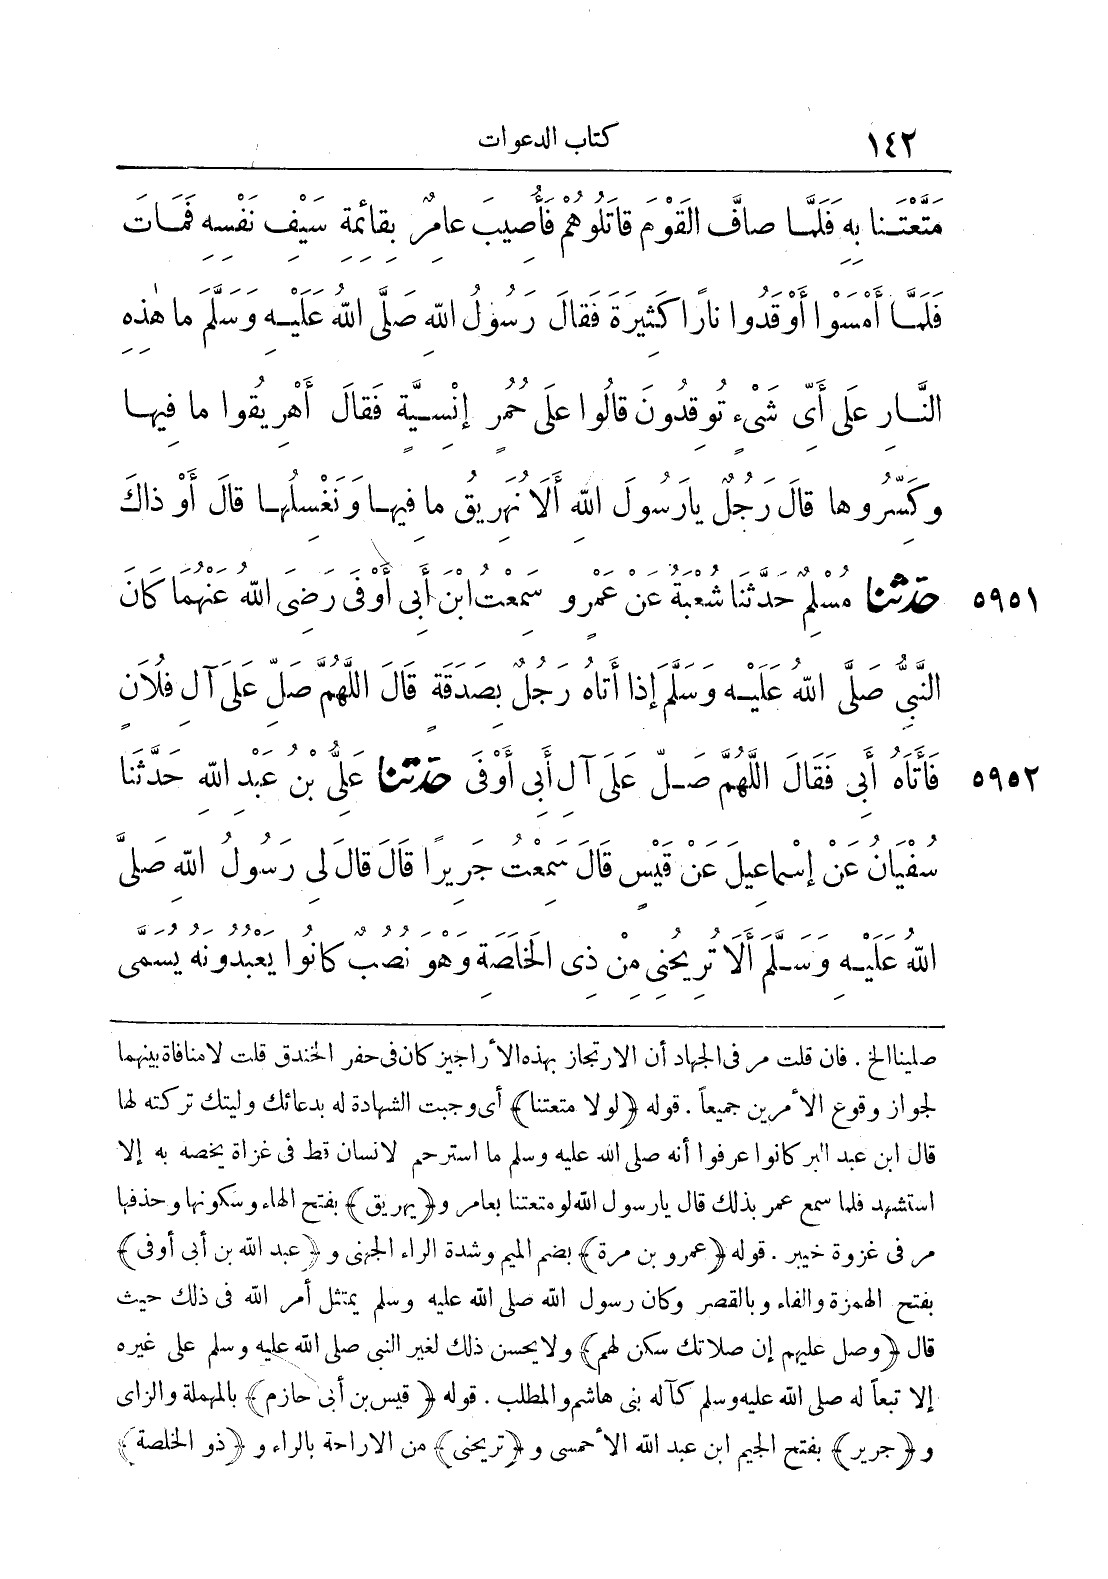 ١٤٢
كتاب الدعوات
مَتَّعْتَنا بِهِ فَلَمَّا صافَّ القَوْمَ قاتَلُوهُمْ فَأُصِيبَ عامِرٌ بِقائِمَةِ سَيْفِ نَفْسِهِ فَمَاتَ
فَلَمَّا أَمْسَوْا أَوْقَدُوا نارًا كَثِيرَةً فَقالَ رَسُولُ اللهِ صَلَّى اللهُ عَلَيْهِ وَسَلَّمَ ما هٰذِهِ
النَّارُ عَلَى أَيِّ شَيْءٍ تُوقِدُونَ قالُوا عَلَى حُمُرٍ إِنْسِيَّةٍ فَقالَ أَهْرِيقُوا ما فِيها
وَكَسِّرُوها قالَ رَجُلٌ يارَسُولَ اللهِ أَلَا نُهَرِيقُ ما فِيها وَنَغْسِلُها قالَ أَوْ ذاكَ
٥٩٥١ حَدَّثَنا مُسْلِمٌ حَدَّثَنا شُعْبَةُ عَنْ عَمْرٍو سَمِعْتُ ابْنَ أَبِى أَوْفَى رَضِىَ اللهُ عَنْهُمَا كَانَ
النَّبِىُّ صَلَّى اللهُ عَلَيْهِ وَسَلَّمَ إِذا أَتاهُ رَجُلٌ بِصَدَقَةٍ قَالَ اللَّهُمَّ صَلِّ عَلَى آلِ فُلَانٍ
٥٩٥٢ فَأَتَاهُ أَبِى فَقَالَ اللَّهُمَّ صَلِّ عَلَى آلِ أَبِى أَوْفَى حَدَّثَنا عَلِىُّ بْنُ عَبْدِ اللهِ حَدَّثَنا
سُفْيَانُ عَنْ إِسْماعِيلَ عَنْ قَيْسٍ قَالَ سَمِعْتُ جَرِيرًا قَالَ قالَ لِى رَسُولُ اللهِ صَلَّى
اللهُ عَلَيْهِ وَسَلَّمَ أَلَا تُرِيحُنِى مِنْ ذِى الخَلَصَةِ وَهُوَ نُصُبٌ كانُوا يَعْبُدُونَهُ يُسَمَّى
صلينا الخ . فان قلت مر فى الجهاد أن الارتجاز بهذه الأراجيز كان فى حفر الخندق قلت لا منافاة بينهما
لجواز وقوع الأمرين جميعاً . قوله ﴿لولا متعتنا﴾ أى وجبت الشهادة له بدعائك وليتك تركته لها
قال ابن عبد البر كانوا عرفوا أنه صلى الله عليه وسلم ما استرحم لانسان قط فى غزاة يخصه به إلا
استشهد فلما سمع عمر بذلك قال يارسول الله لو متعتنا بعامر و﴿يهريق﴾ بفتح الهاء وسكونها وحذفها
مر فى غزوة خيبر . قوله ﴿عمرو بن مرة﴾ بضم الميم وشدة الراء الجهنى و﴿عبد الله بن أبى أوفى﴾
بفتح الهمزة والفاء وبالقصر وكان رسول الله صلى الله عليه وسلم يمتثل أمر الله فى ذلك حيث
قال ﴿وصل عليهم إن صلاتك سكن لهم﴾ ولا يحسن ذلك لغير النبى صلى الله عليه وسلم على غيره
إلا تبعاً له صلى الله عليه وسلم كآله بنى هاشم والمطلب . قوله ﴿قيس بن أبى حازم﴾ بالمهملة والزاى
و﴿جرير﴾ بفتح الجيم ابن عبد الله الأحمسى و﴿تريحنى﴾ من الاراحة بالراء و﴿ذو الخلصة﴾